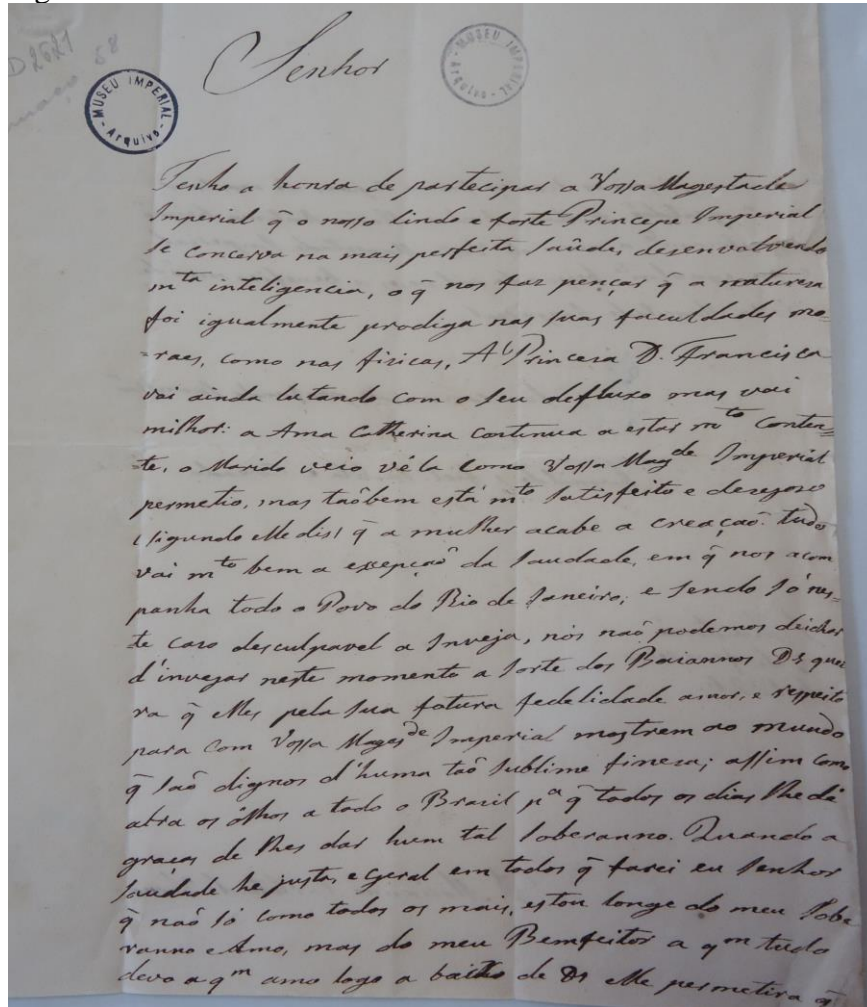 D 2621
68
MUSEU IMPERIAL
- Arquivo -
MUSEU IMPERIAL
- Arquivo -
Senhor
Tenho a honra de partecipar a Vossa Magestade
Imperial q̃ o nosso lindo e forte Princepe Imperial
se concerva na mais perfeita saûde, desenvolvendo
mta inteligencia, o q̃ nos faz pençar q̃ a natureza
foi igualmente prodiga nas suas faculdades mo-
=raes, como nas fizicas, A Princeza D. Francisca
vai ainda lutando com o seu defluxo mas vai
milhor: a Ama Catherina continua a estar mto conten=
=te, o Marido veio véla como Vossa Magde Imperial
permetio, mas taõbem está mto satisfeito e dezejozo
(sigundo elle dis) q̃ a mulher acabe a creaçaõ. tudo
vai mto bem a excepçaõ da saudade, em q̃ nos acom
panha todo o Povo do Rio de Janeiro; e sendo só nes-
te cazo desculpavel a Inveja, nós naõ podemos deichar
d'invejar neste momento a sorte dos Baiannos Ds quei
ra q̃ elles pela sua fotura fedelidade amor, e respeito
para com Vossa Magesde Imperial mostrem ao mundo
q̃ saõ dignos d'huma taõ sublime fineza; assim como
abra os ólhos a todo o Brazil pa q̃ todos os dias lhe dê
graças de lhes dar hum tal soberanno. Quando a
saudade he justa, e geral em todos q̃ farei eu senhor
q̃ naõ só como todos os mais, estou longe do meu Sobe
ranno e Amo, mas do meu Bemfeitor a qm tudo
devo a qm amo logo a baixo de Ds elle permetira q̃